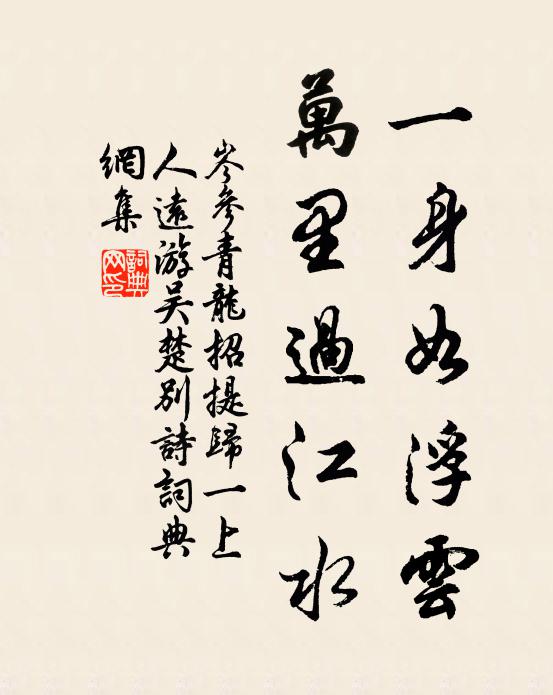 一身如浮雲
萬里過江水
岑參青龍招提歸一上
人遠游吳楚別詩詞典
網集
詞典
网印